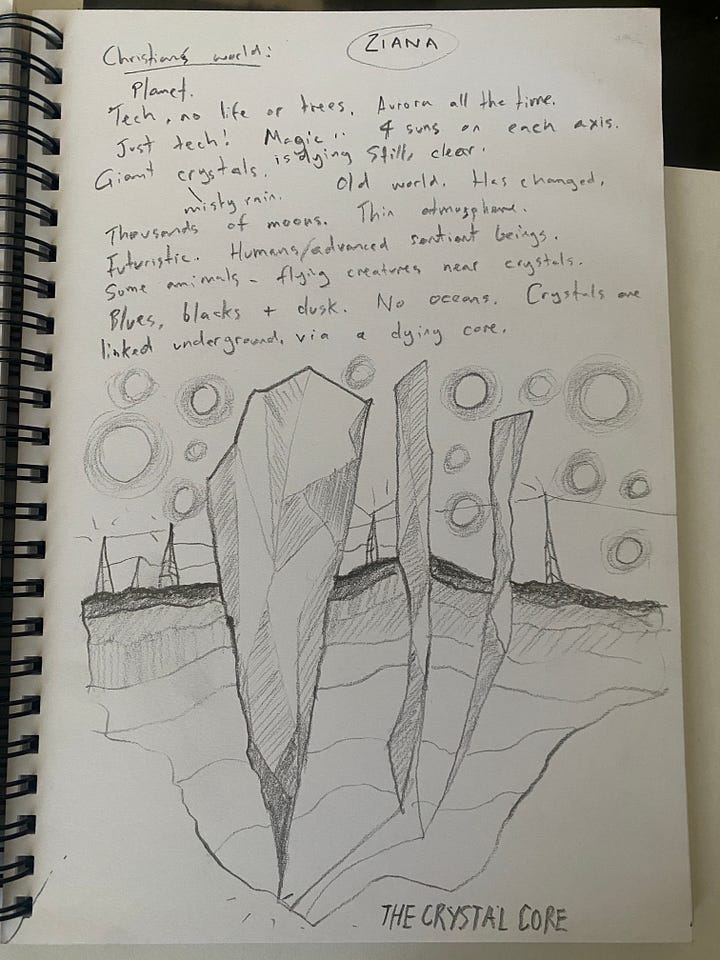 Christian's world: ZIANA
Planet.
Tech, no life or trees. Aurora all the time.
Just tech! Magic is dying. 4 suns on each axis.
Giant crystals. Still, clear.
misty rain. Old world. Has changed.
Thousands of moons. Thin atmosphere.
Futuristic. Humans/advanced sentient beings.
Some animals - flying creatures near crystals.
Blues, blacks + dusk. No oceans. Crystals are
linked underground, via a dying core.
THE CRYSTAL CORE